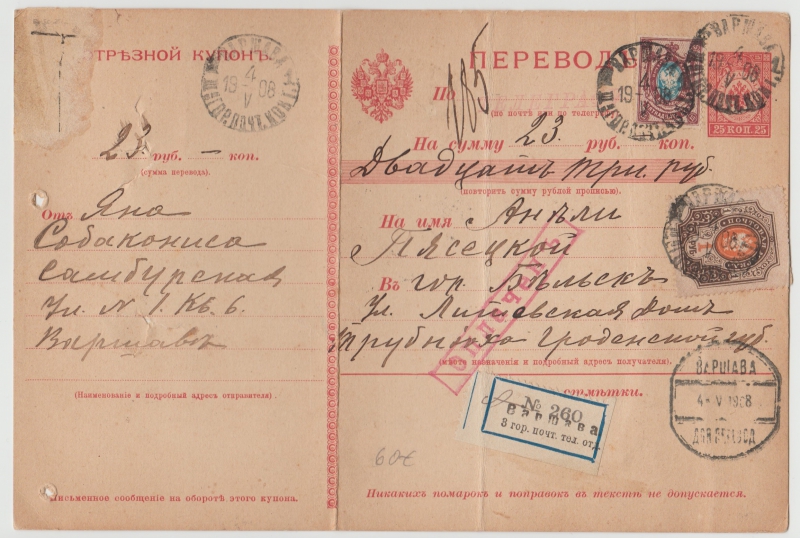 ОТРЪЗНОЙ КУПОНЪ.
ВАРШАВА
4
19 08
V
23. руб. – коп.
(сумма перевода).
Отъ Яна
Собакониса
Самбурская
Ул. N 1. Кв. 6.
Варшава
(Наименованіе и подробный адресъ отправителя).
Письменное сообщеніе на оборотѣ этого купона.
ПЕРЕВОДЪ
185
По
(по почтѣ или по телегр
На сумму 23. руб. коп.
Двадцать три. руб.
(повторить сумму рублей прописью).
На имя Анѣли
Пясецкой
Въ гор. Бѣльскъ
Ул. Литовская Домъ
Трубника Гроденской губ.
(мѣсто назначенія и подробный адресъ получателя).
Оплачен
отмѣтки.
№ 260
Варшава
3 гор. почт. тел. от.
60€
Никакихъ помарокъ и поправокъ въ текстѣ не допускается.
ВАРШАВА
4
19
ВАРШАВА
4
19 08
V
25 КОП. 25
ВАРШАВА
4- V 1908
ДЛЯ ПЕРЕВОД